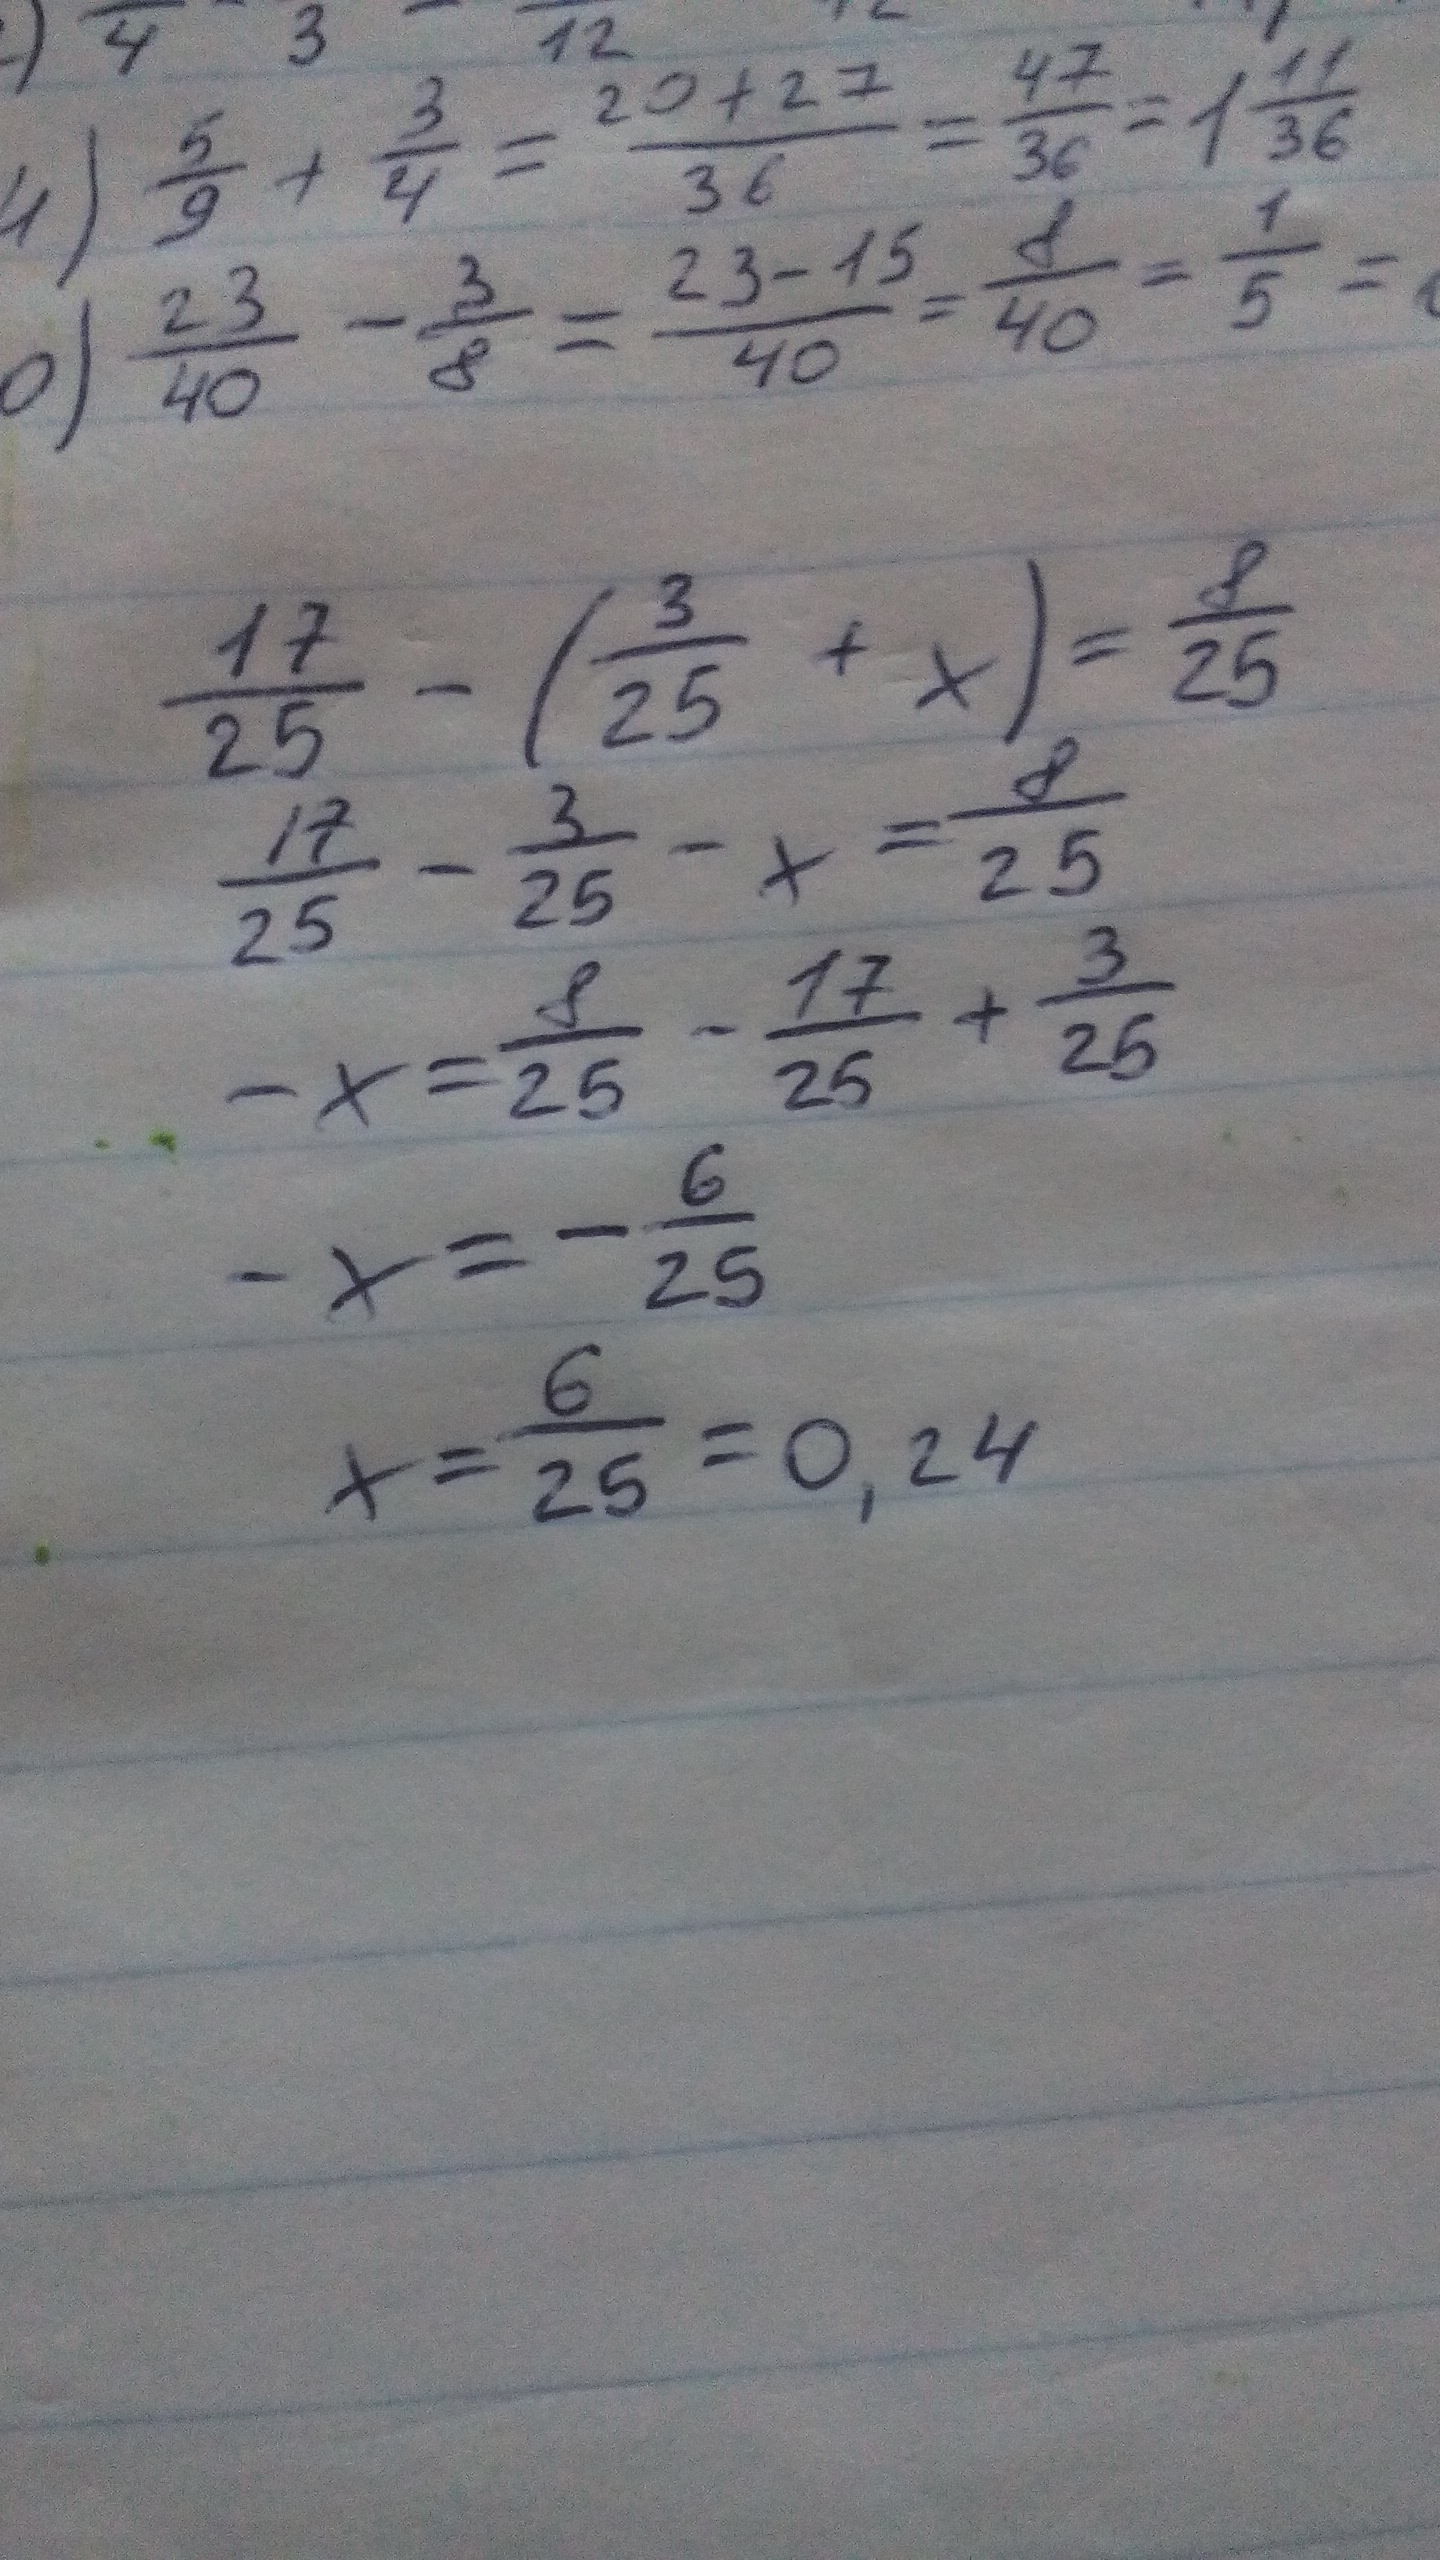 4 3 12
4) 5/9 + 3/4 = 20+27/36 = 47/36 = 1 11/36
0) 23/40 - 3/8 = 23-15/40 = 8/40 = 1/5 =
17/25 - (3/25 + x) = 8/25
17/25 - 3/25 - x = 8/25
- x = 8/25 - 17/25 + 3/25
- x = - 6/25
x = 6/25 = 0,24